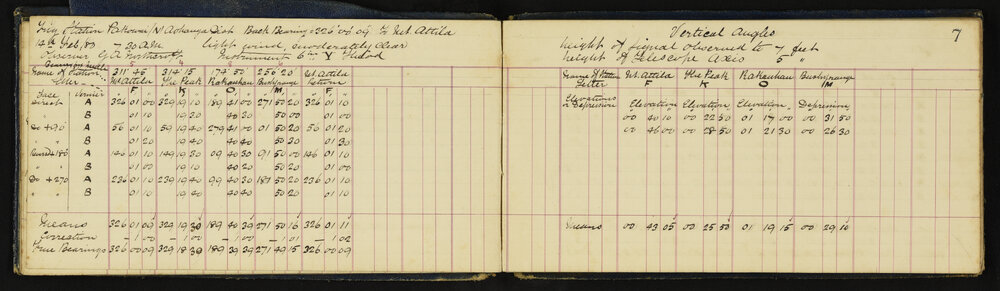 Station Pakowai N Aohanga Dist Back Bearing 326° 00' 09" to Mt Attila
14th Feb, 83 — 30 A.M. light wind, moderately clear
Observer G.A. Northcroft Instrument 6 in Y Theod
311 45 314 15 174 50 256 20 Mt Attila
Name of Station Mt Attila The Peak Rakauhau Bushy range Return
Letter F K O M F
Face Vernier
direct A 326 01 00 329 19 10 189 41 00 271 50 20 326 01 10
" B 01 10 19 20 40 30 50 00 01 00
Do + 90 A 56 01 10 59 19 40 279 41 00 01 50 20 56 01 20
" B 01 20 19 40 40 40 50 30 01 30
Revsd + 180 A 146 01 10 149 19 30 09 40 30 91 50 00 146 01 10
" B 01 00 19 10 40 20 50 20 01 00
Do + 270 A 236 01 10 239 19 40 99 40 30 181 50 20 236 01 10
" B 01 10 19 40 40 40 50 20 01 10
Means 326 01 09 329 19 30 189 40 39 271 50 16 326 01 11
Correction – 1 00 – 1 00 – 1 00 – 1 01 – 1 02
True Bearings 326 00 09 329 18 30 189 39 39 271 49 15 326 00 09
7
Vertical Angles
height of signal observed to 7 feet
height of Telescope Axis 5 "
Name of Station Mt. Attila The Peak Rakauhau Bushyrange
Letter F K O M
Elevations or Depression Elevation Elevation Elevation Depression
00 40 10 00 22 50 01 17 00 00 31 50
00 46 00 00 28 50 01 21 30 00 26 30
Means 00 43 05 00 25 50 01 19 15 00 29 10